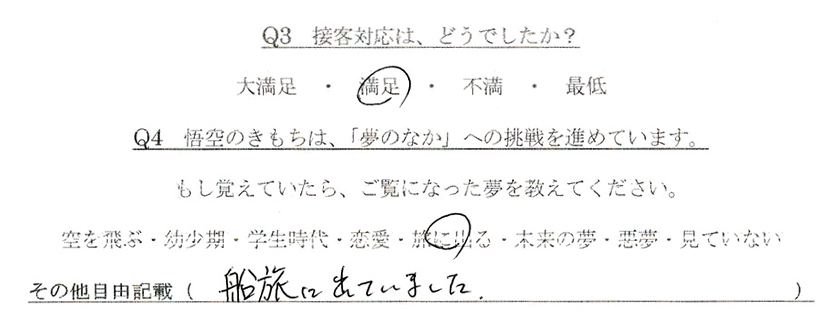 Q3 接客対応は、どうでしたか?
大満足 ・ 満足 ・ 不満 ・ 最低
Q4 悟空のきもちは、「夢のなか」への挑戦を進めています。
もし覚えていたら、ご覧になった夢を教えてください。
空を飛ぶ・幼少期・学生時代・恋愛・旅に出る・未来の夢・悪夢・見ていない
その他自由記載 ( 船旅に出ていました. )